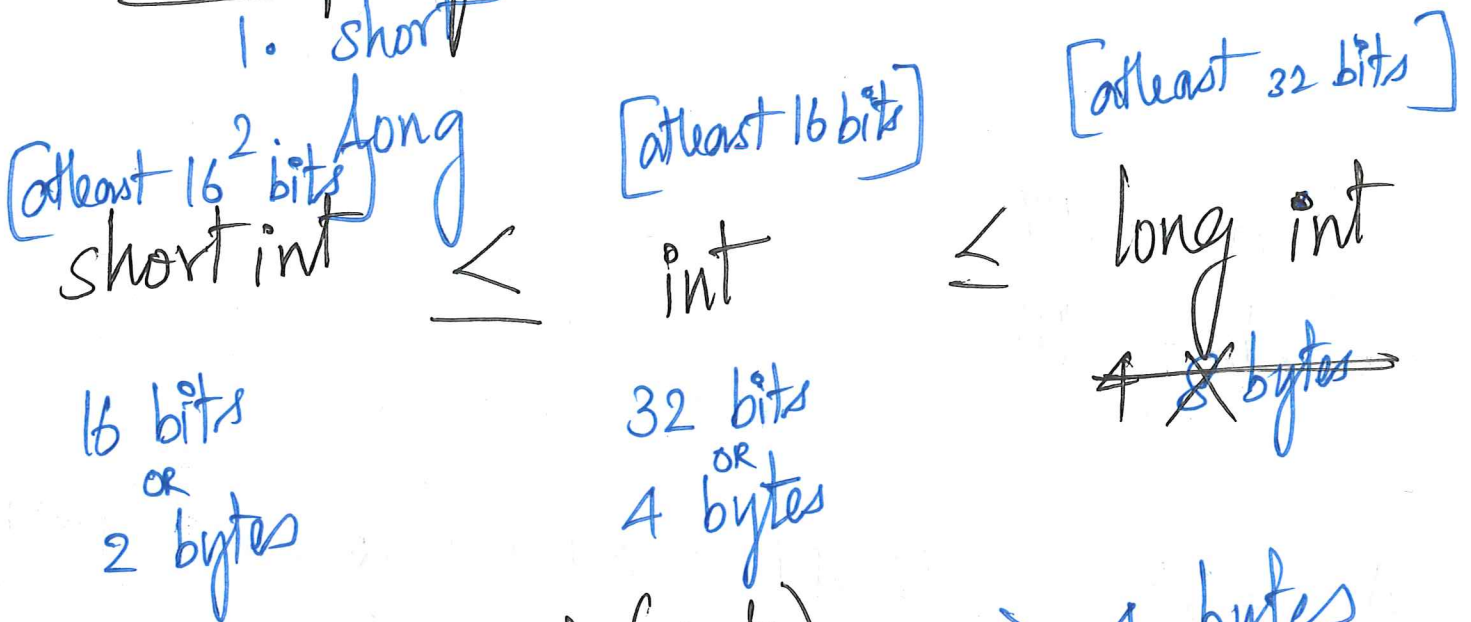 1. short
2 long
[atleast 16 bits]
[atleast 16 bits]
[atleast 32 bits]
short int ≤ int ≤ long int
16 bits
OR
2 bytes
32 bits
OR
4 bytes
4 8 bytes
bytes